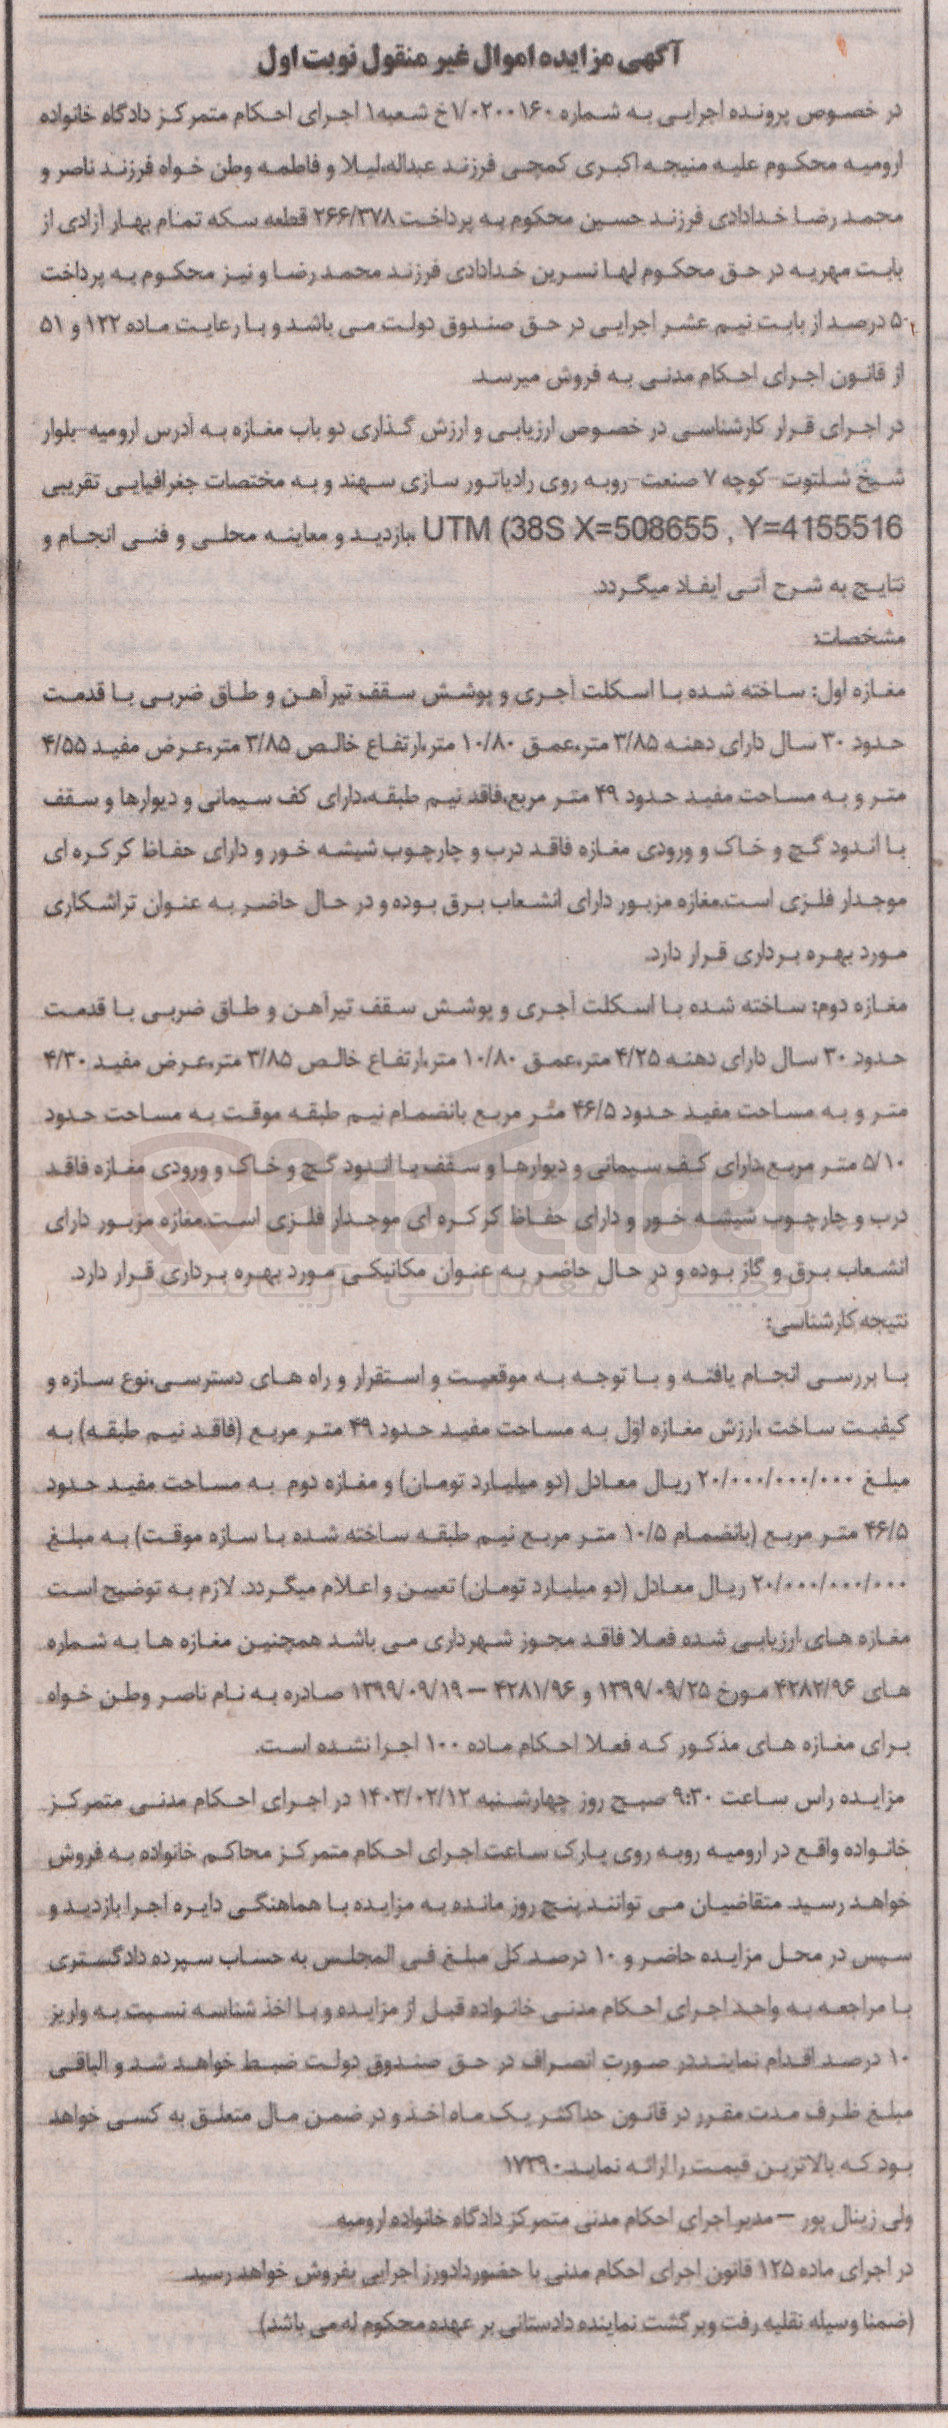 آگهی مزایده اموال غیر منقول نوبت اول
در خصوص پرونده اجرایی به شماره ۱/۰۲۰۰۱۶۰خ شعبه۱ اجرای احکام متمرکز دادگاه خانواده
ارومیه محکوم علیه منیجه اکبری کمچی فرزند عبداله،لیلا و فاطمه وطن خواه فرزند ناصر و
محمد رضا خدادادی فرزند حسین محکوم به پرداخت ۲۶۶/۳۷۸ قطعه سکه تمام بهار آزادی از
بابت مهریه در حق محکوم لها نسرین خدادادی فرزند محمد رضا و نیز محکوم به پرداخت
۵۰ درصد از بابت نیم عشر اجرایی در حق صندوق دولت می باشد و با رعایت ماده ۱۲۲ و ۵۱
از قانون اجرای احکام مدنی به فروش میرسد.
در اجرای قرار کارشناسی در خصوص ارزیابی و ارزش گذاری دو باب مغازه به آدرس ارومیه-بلوار
شیخ شلتوت-کوچه ۷ صنعت-روبه روی رادیاتور سازی سهند و به مختصات جغرافیایی تقریبی
UTM (38S X=508655 , Y=4155516 ،بازدید و معاینه محلی و فنی انجام و
نتایج به شرح آتی ایفاد میگردد.
مشخصات:
مغازه اول: ساخته شده با اسکلت آجری و پوشش سقف تیرآهن و طاق ضربی با قدمت
حدود ۳۰ سال دارای دهنه ۳/۸۵ متر،عمق ۱۰/۸۰ متر،ارتفاع خالص ۳/۸۵ متر،عرض مفید ۴/۵۵
متر و به مساحت مفید حدود ۴۹ متر مربع،فاقد نیم طبقه،دارای کف سیمانی و دیوارها و سقف
با اندود گچ و خاک و ورودی مغازه فاقد درب و چارچوب شیشه خور و دارای حفاظ کرکره ای
موجدار فلزی است.مغازه مزبور دارای انشعاب برق بوده و در حال حاضر به عنوان تراشکاری
مورد بهره برداری قرار دارد.
مغازه دوم: ساخته شده با اسکلت آجری و پوشش سقف تیرآهن و طاق ضربی با قدمت
حدود ۳۰ سال دارای دهنه ۴/۲۵ متر،عمق ۱۰/۸۰ متر،ارتفاع خالص ۳/۸۵ متر،عرض مفید ۴/۳۰
متر و به مساحت مفید حدود ۴۶/۵ متر مربع بانضمام نیم طبقه موقت به مساحت حدود
۵/۱۰ متر مربع،دارای کف سیمانی و دیوارها و سقف با اندود گچ و خاک و ورودی مغازه فاقد
درب و چارچوب شیشه خور و دارای حفاظ کرکره ای موجدار فلزی است.مغازه مزبور دارای
انشعاب برق و گاز بوده و در حال حاضر به عنوان مکانیکی مورد بهره برداری قرار دارد.
AriaTender
نتیجه کارشناسی:
با بررسی انجام یافته و با توجه به موقعیت و استقرار و راه های دسترسی،نوع سازه و
کیفیت ساخت ،ارزش مغازه اول به مساحت مفید حدود ۴۹ متر مربع (فاقد نیم طبقه) به
مبلغ ۲۰/۰۰۰/۰۰۰/۰۰۰ ریال معادل (دو میلیارد تومان) و مغازه دوم به مساحت مفید حدود
۴۶/۵ متر مربع (بانضمام ۱۰/۵ متر مربع نیم طبقه ساخته شده با سازه موقت) به مبلغ
۲۰/۰۰۰/۰۰۰/۰۰۰ ریال معادل (دو میلیارد تومان) تعیین و اعلام میگردد. لازم به توضیح است
مغازه های ارزیابی شده فعلا فاقد مجوز شهرداری می باشد همچنین مغازه ها به شماره
های ۴۲۸۲/۹۶ مورخ ۱۳۹۹/۰۹/۲۵ و ۴۲۸۱/۹۶ – ۱۳۹۹/۰۹/۱۹ صادره به نام ناصر وطن خواه
برای مغازه های مذکور که فعلا احکام ماده ۱۰۰ اجرا نشده است.
مزایده راس ساعت ۹:۳۰ صبح روز چهارشنبه ۱۴۰۳/۰۲/۱۲ در اجرای احکام مدنی متمرکز
خانواده واقع در ارومیه روبه روی پارک ساعت اجرای احکام متمرکز محاکم خانواده به فروش
خواهد رسید. متقاضیان می توانند پنج روز مانده به مزایده با هماهنگی دایره اجرا بازدید و
سپس در محل مزایده حاضر و ۱۰ درصد کل مبلغ فی المجلس به حساب سپرده دادگستری
با مراجعه به واحد اجرای احکام مدنی خانواده قبل از مزایده و با اخذ شناسه نسبت به واریز
۱۰ درصد اقدام نمایند.در صورت انصراف در حق صندوق دولت ضبط خواهد شد و الباقی
مبلغ ظرف مدت مقرر در قانون حداکثر یک ماه اخذ و در ضمن مال متعلق به کسی خواهد
بود که بالاترین قیمت را ارائه نماید.۱۷۳۹۰
ولی زینال پور – مدیر اجرای احکام مدنی متمرکز دادگاه خانواده ارومیه
در اجرای ماده ۱۲۵ قانون اجرای احکام مدنی با حضور دادورز اجرایی بفروش خواهد رسید.
(ضمنا وسیله نقلیه رفت وبرگشت نماینده دادستانی بر عهده محکوم له می باشد)